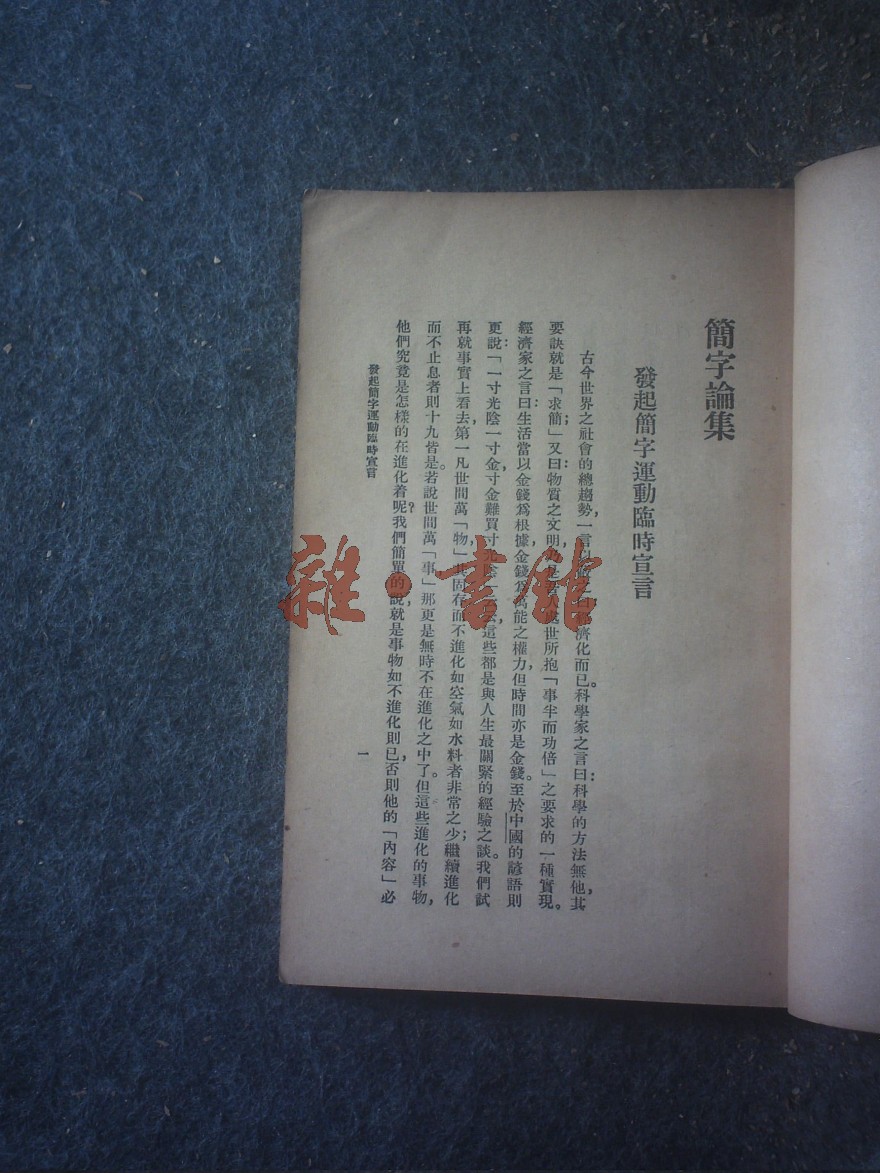 簡字論集
發起簡字運動臨時宣言
古今世界之社會的總趨勢,一言以蔽之曰經濟化而已。科學家之言曰:科學的方法無他,其
要訣就是「求簡」;又曰:物質之文明乃是人處世所抱「事半而功倍」之要求的一種實現。
經濟家之言曰:生活當以金錢爲根據,金錢爲萬能之權力,但時間亦是金錢。至於中國的諺語則
更說:「一寸光陰一寸金,寸金難買寸光陰」云云,這些都是與人生最關緊的經驗之談。我們試
再就事實上看去,第一凡世間萬「物」,其固存而不進化如空氣如水料者非常之少;繼續進化
而不止息者則十九皆是。若說世間萬「事」,那更是無時不在進化之中了。但這些進化的事物,
他們究竟是怎樣的在進化着呢?我們簡單的說,就是事物如不進化則已,否則他的「內容」必
發起簡字運動臨時宣言
一
雜·書館